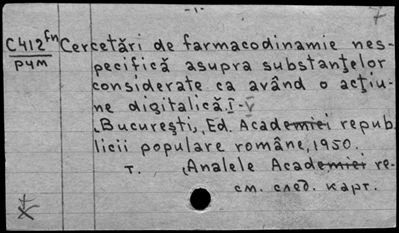 -1-
7
C412fn Cercetări de farmacodinamie nes-
рум pecifică asupra substanţelor
considerate ca având o acţiu-
ne digitalică. I-V
București, Ed. Academiei repub
licii populare române, 1950.
т. (Analele Academiei re-
см. след. карт.